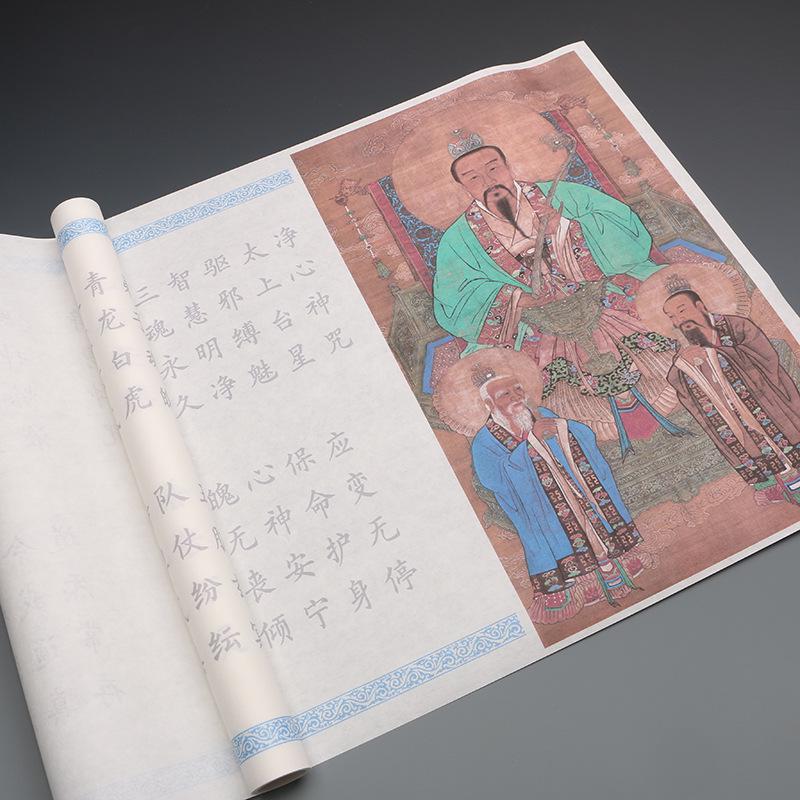 净心神咒
太上台星 应变无停
驱邪缚魅 保命护身
智慧明净 心神安宁
三魂永久 魄无丧倾
青龙白虎 队仗纷纭